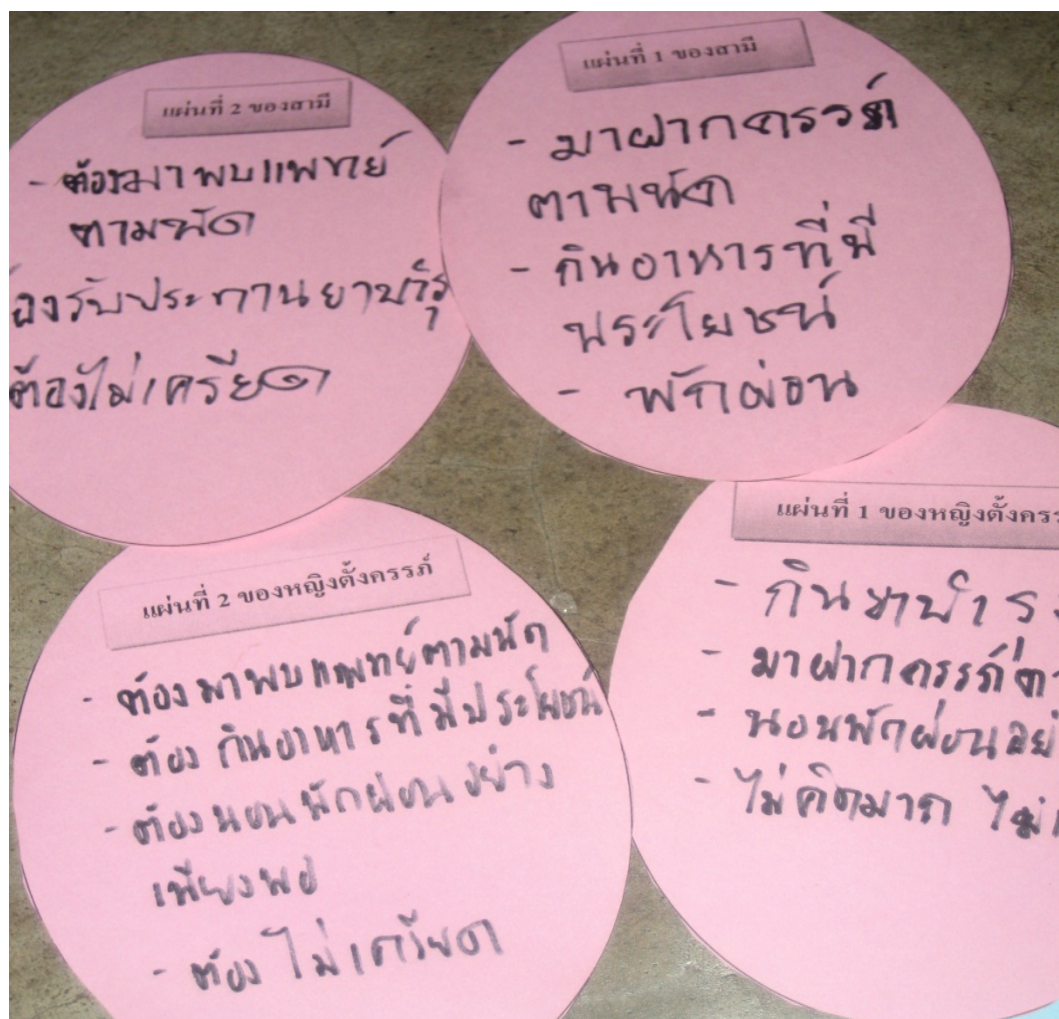 แผ่นที่ 2 ของสามี
- ต้องมาพบแพทย์
ตามนัด
องรับประทานยาบำรุ
ต้องไม่เครียด
แผ่นที่ 1 ของสามี
- มาฝากครรภ์
ตามนัด
- กินอาหารที่มี
ประโยชน์
- พักผ่อน
แผ่นที่ 2 ของหญิงตั้งครรภ์
- ต้องมาพบแพทย์ตามนัด
- ต้องกินอาหารที่มีประโยชน์
- ต้องนอนพักผ่อนอย่าง
เพียงพอ
- ต้องไม่เครียด
แผ่นที่ 1 ของหญิงตั้งครร
- กินยาบำร
- มาฝากครรภ์ต
- นอนพักผ่อนอย
- ไม่คิดมาก ไม่